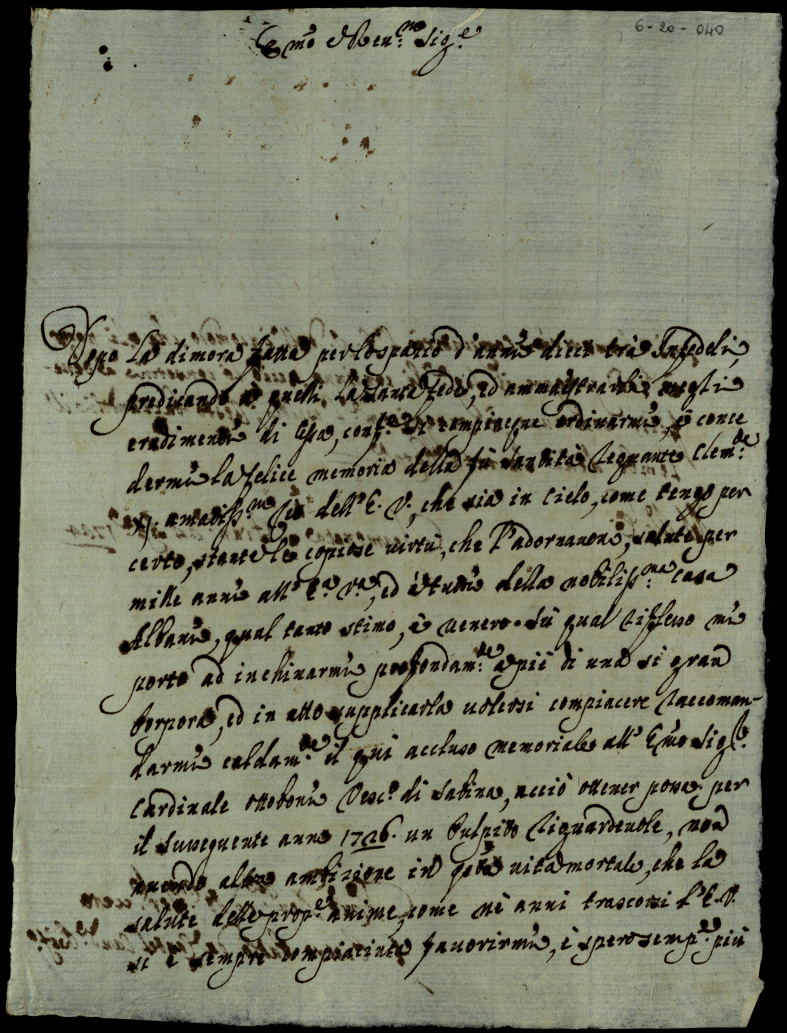 6-20-040
Emo e Reu.mo Sig.e
Dopo La dimora fatta per lo spatio d'anni dieci trà Infedeli,
predicando à quelli la Santa Fede, ed ammaestrarli negli
erudimenti di essa, conf.e si compiacque ordinarmi, e conce
dermi la felice memoria della fù Santità Clem.te
XI. amatiss.mo Zio dell'E. V., che sia in Cielo, come tengo per
certo, stante le copiose uirtù, che l'adornauono, salute per
mille anni all'E.a V.a, ed è tutti della nobiliss.ma casa
Albani, qual tanto stimo, è uenero. Sù qual riflesso mi
porto ad inchinarmi profondam.te à pié di una si gran
Porpora, ed in atto supplicarla uolersi compiacere raccoman-
darmi caldam.te il qui accluso memoriale all'Emo Sig.e
Cardinale Ottoboni Vesc.o di Sabina, acciò ottener possa per
il susseguente anno 1726. un Pulpito riguardeuole, non
auendo altra ambizione in q.sta uita mortale, che la
salute delle prop.e anime, come nè anni trascorsi l'E.V.
si è sempre compiaciuta fauorirmi, è spero semp.e più